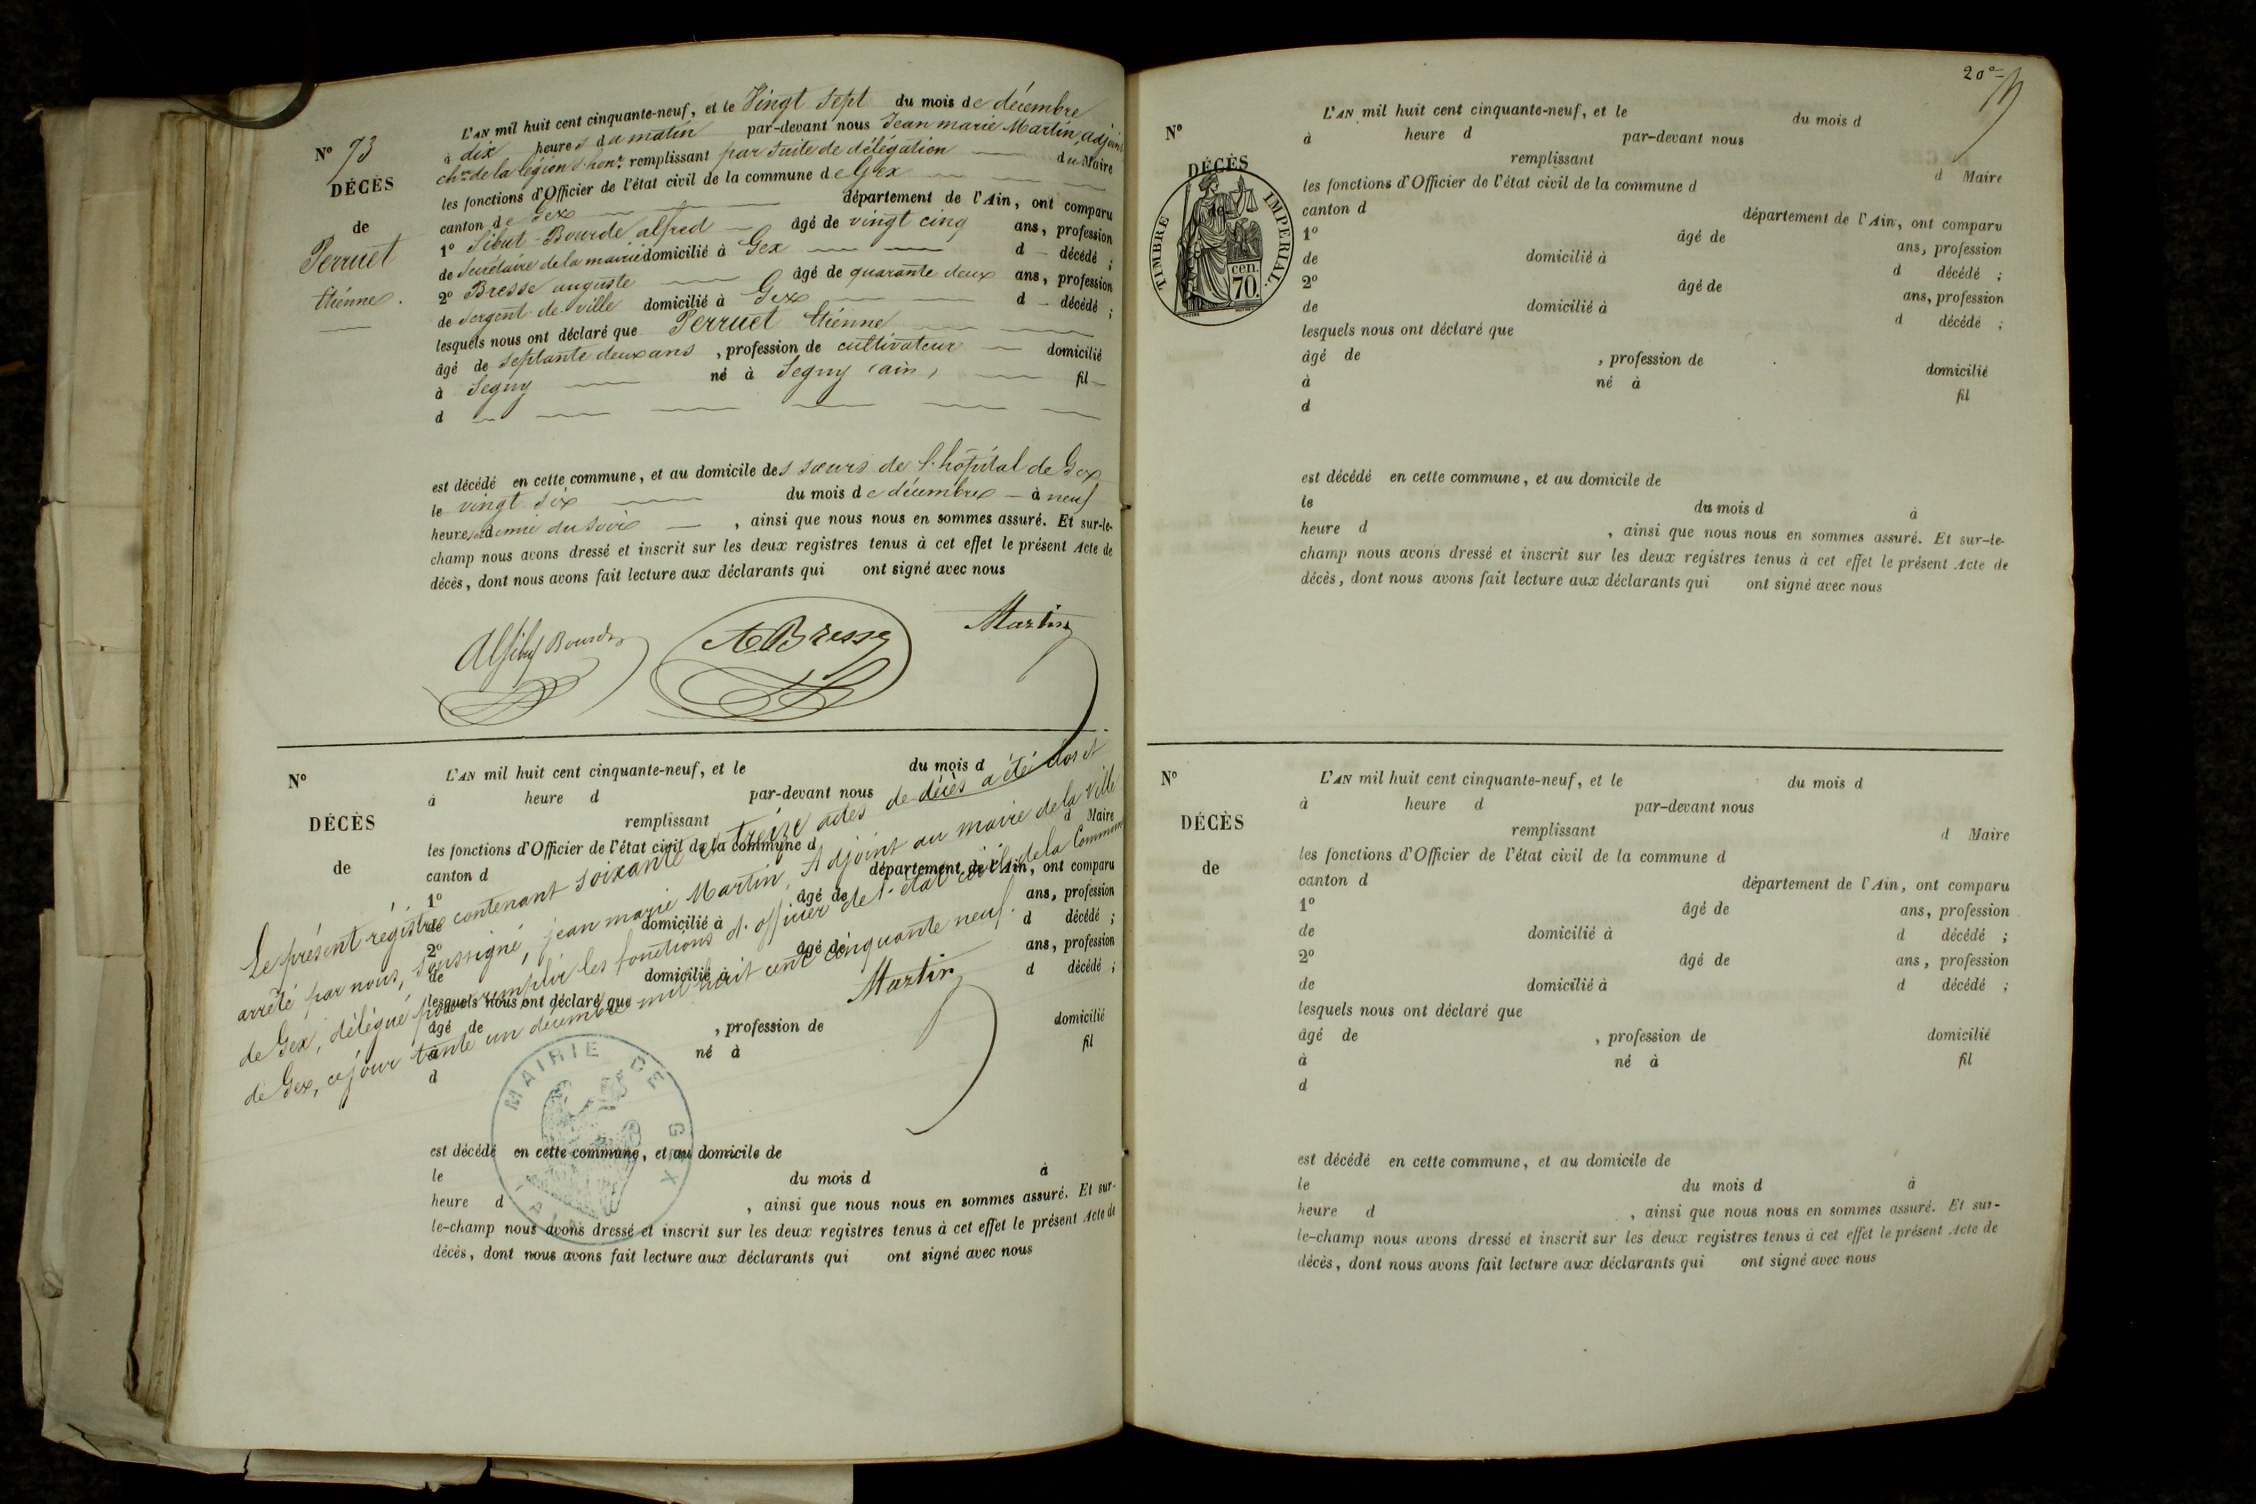 N° 73
DÉCÈS
de
Perruet
Etienne.
L'AN mil huit cent cinquante-neuf, et le Vingt Sept du mois de décembre
à dix heures du matin par-devant nous Jean marie Martin, adjoint
ch.er de la légion d'hon.r remplissant par suite de délégation du Maire
les fonctions d'Officier de l'état civil de la commune de Gex
canton de Gex département de l'Ain, ont comparu
1° Sibut-Bourde alfred âgé de vingt cinq ans, profession
de Secrétaire de la mairie domicilié à Gex d décédé ;
2° Bresse auguste âgé de quarante deux ans, profession
de Sergent de ville domicilié à Gex d décédé ;
lesquels nous ont déclaré que Perruet Etienne
âgé de septante deux ans, profession de cultivateur domicilié
à Segny né à Segny (ain) fil
d
est décédé en cette commune, et au domicile des sœurs de l'hôpital de Gex
le vingt six du mois de décembre à neuf
heures demie du soir, ainsi que nous nous en sommes assuré. Et sur-le-
champ nous avons dressé et inscrit sur les deux registres tenus à cet effet le présent Acte de
décès, dont nous avons fait lecture aux déclarants qui ont signé avec nous
Al Sibut Bourde A Bresse Martin
N°
DÉCÈS
de
L'AN mil huit cent cinquante-neuf, et le du mois d
à heure d par-devant nous
remplissant d Maire
les fonctions d'Officier de l'état civil de la commune d
canton d département de l'Ain, ont comparu
1° âgé de ans, profession
de domicilié à d décédé ;
2° âgé de ans, profession
de domicilié à d décédé ;
lesquels nous ont déclaré que
âgé de , profession de domicilié
à né à fil
d
Le présent régistre contenant soixante et treize actes de décès a été clos et
arrêté par nous, soussigné, jean marie Martin, Adjoint au maire de la Ville
de Gex, délégué pour remplir les fonctions d'officier de l'état civil de la Commune
de Gex, ce jour tante un décembre mil huit cent cinquante neuf.
Martin
MAIRIE DE GEX
(AIN)
est décédé en cette commune, et au domicile de
le du mois d à
heure d , ainsi que nous nous en sommes assuré. Et sur-
le-champ nous avons dressé et inscrit sur les deux registres tenus à cet effet le présent Acte de
décès, dont nous avons fait lecture aux déclarants qui ont signé avec nous
20e
N°
DÉCÈS
de
TIMBRE IMPÉRIAL.
cen.
70.
L'AN mil huit cent cinquante-neuf, et le du mois d
à heure d par-devant nous
remplissant d Maire
les fonctions d'Officier de l'état civil de la commune d
canton d département de l'Ain, ont comparu
1° âgé de ans, profession
de domicilié à d décédé ;
2° âgé de ans, profession
de domicilié à d décédé ;
lesquels nous ont déclaré que
âgé de , profession de domicilié
à né à fil
d
est décédé en cette commune, et au domicile de
le du mois d à
heure d , ainsi que nous nous en sommes assuré. Et sur-le-
champ nous avons dressé et inscrit sur les deux registres tenus à cet effet le présent Acte de
décès, dont nous avons fait lecture aux déclarants qui ont signé avec nous
N°
DÉCÈS
de
L'AN mil huit cent cinquante-neuf, et le du mois d
à heure d par-devant nous
remplissant d Maire
les fonctions d'Officier de l'état civil de la commune d
canton d département de l'Ain, ont comparu
1° âgé de ans, profession
de domicilié à d décédé ;
2° âgé de ans, profession
de domicilié à d décédé ;
lesquels nous ont déclaré que
âgé de , profession de domicilié
à né à fil
d
est décédé en cette commune, et au domicile de
le du mois d à
heure d , ainsi que nous nous en sommes assuré. Et sur-
le-champ nous avons dressé et inscrit sur les deux registres tenus à cet effet le présent Acte de
décès, dont nous avons fait lecture aux déclarants qui ont signé avec nous